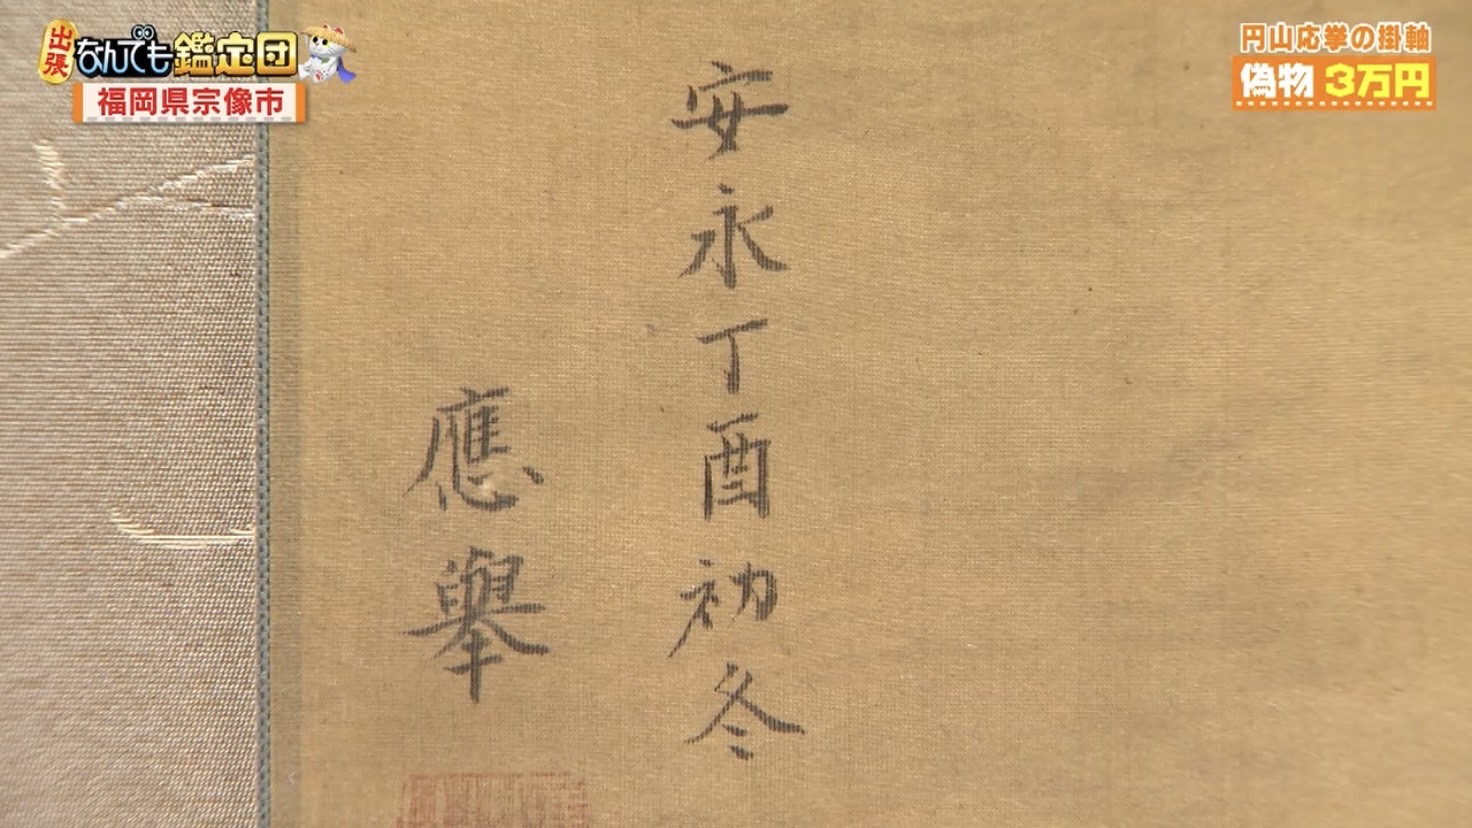 出張
なんでも鑑定団
福岡県宗像市
円山応挙の掛軸
偽物 3万円
安永丁酉初冬
應擧